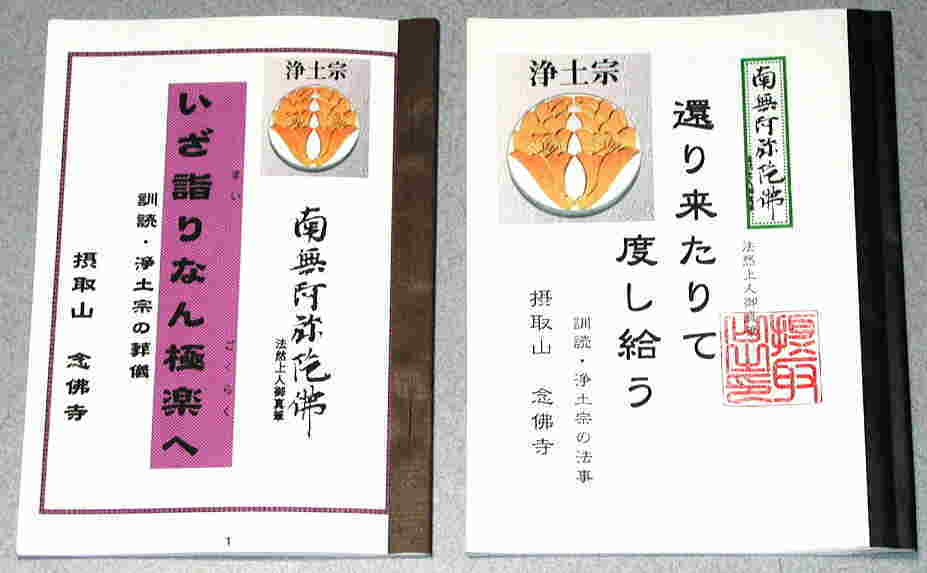 浄土宗
南無阿弥陀佛
法然上人御真筆
いざ詣りなん極楽へ
まい
ごくらく
訓読・浄土宗の葬儀
摂取山 念佛寺
1
浄土宗
南無阿弥陀佛
法然上人御真筆
還り来たりて
度し給う
訓読・浄土宗の法事
摂取山 念佛寺
摂取